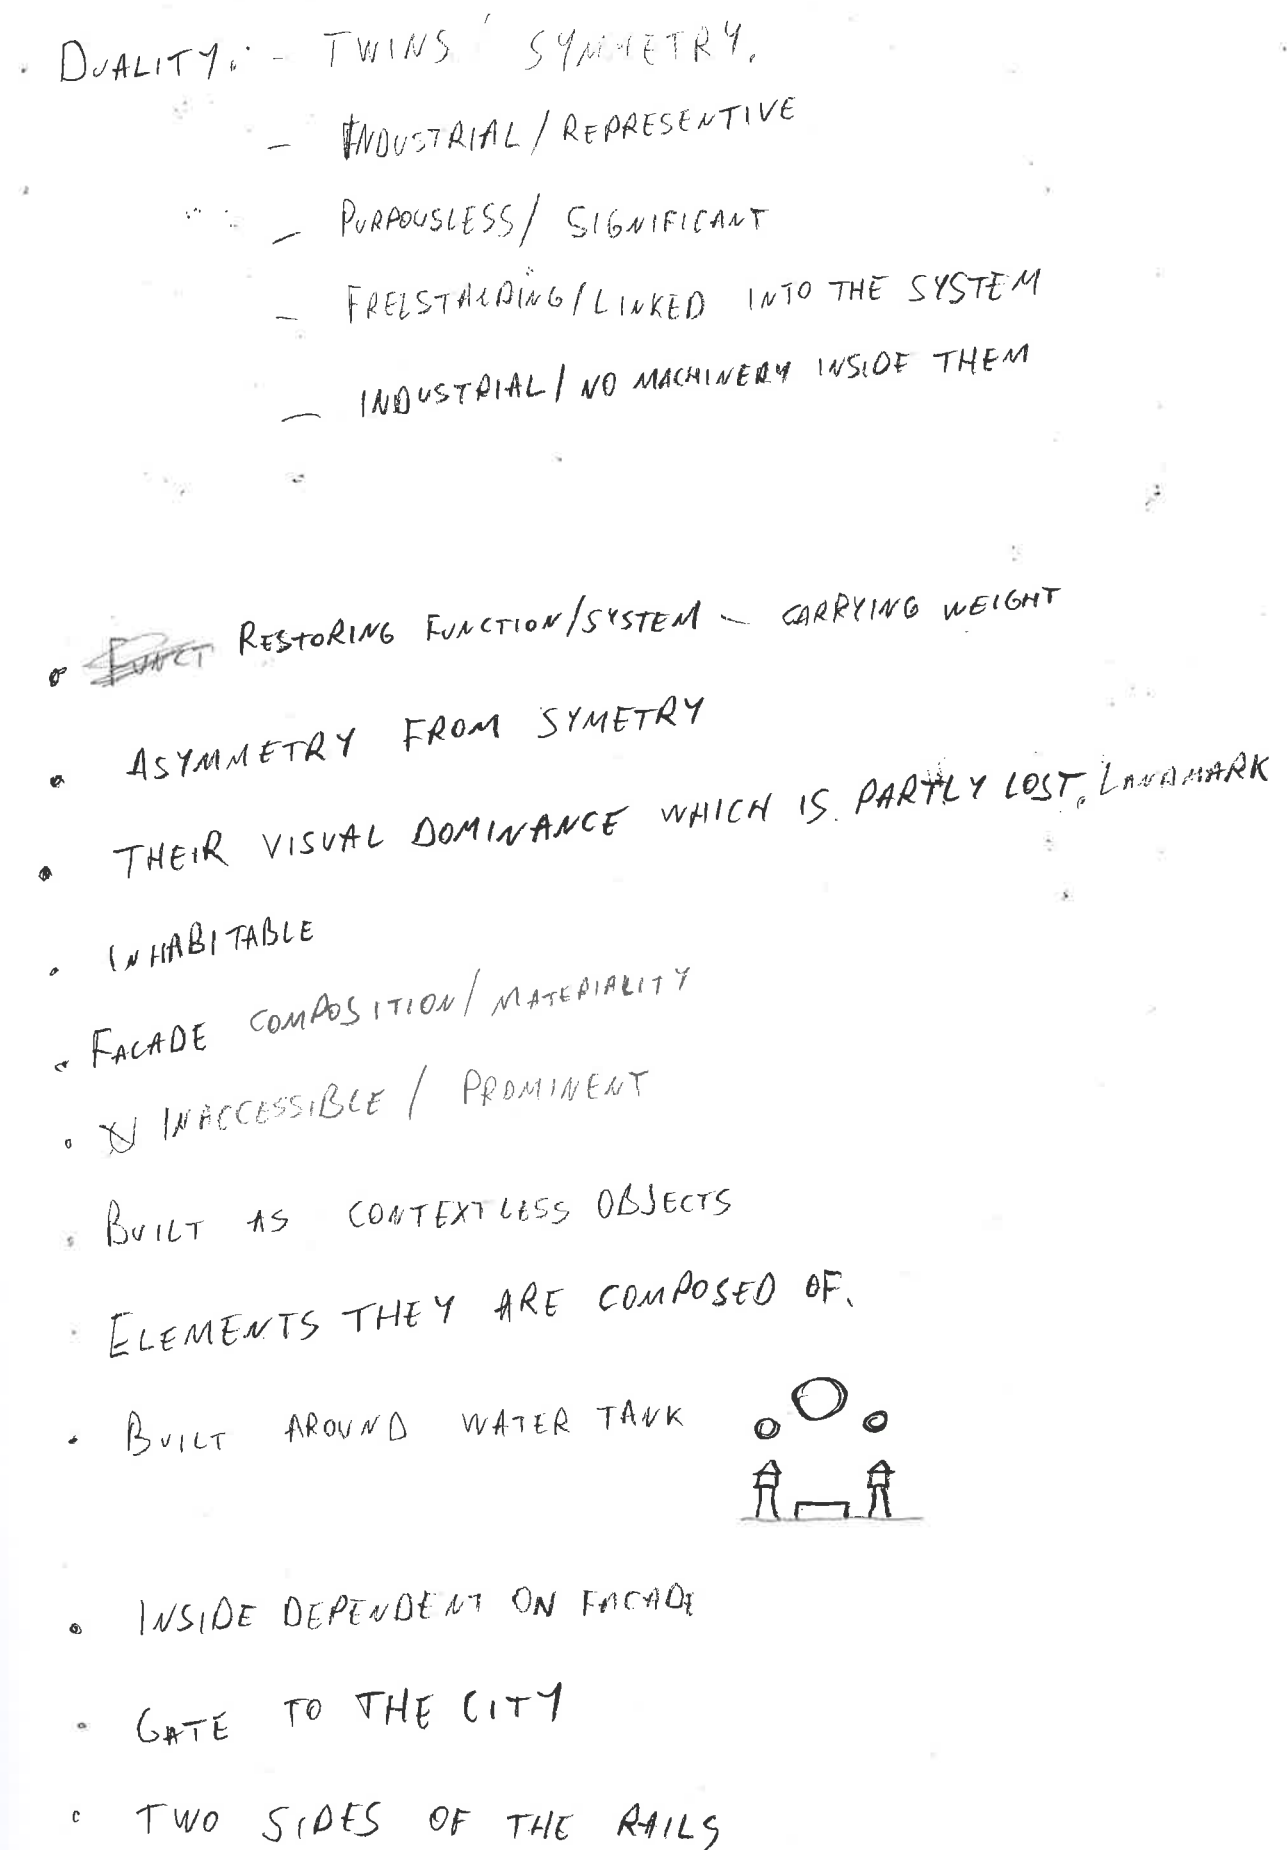 · DUALITY: - TWINS' SYMMETRY.
- INDUSTRIAL / REPRESENTIVE
- PURPOUSLESS / SIGNIFICANT
- FREESTANDING / LINKED INTO THE SYSTEM
- INDUSTRIAL / NO MACHINERY INSIDE THEM
· FUNCT RESTORING FUNCTION/SYSTEM - CARRYING WEIGHT
· ASYMMETRY FROM SYMETRY
· THEIR VISUAL DOMINANCE WHICH IS PARTLY LOST. LANDMARK
· INHABITABLE
· FACADE COMPOSITION / MATERIALITY
· INACCESSIBLE / PROMINENT
· BUILT AS CONTEXTLESS OBJECTS
· ELEMENTS THEY ARE COMPOSED OF.
· BUILT AROUND WATER TANK
· INSIDE DEPENDENT ON FACADE
· GATE TO THE CITY
· TWO SIDES OF THE RAILS